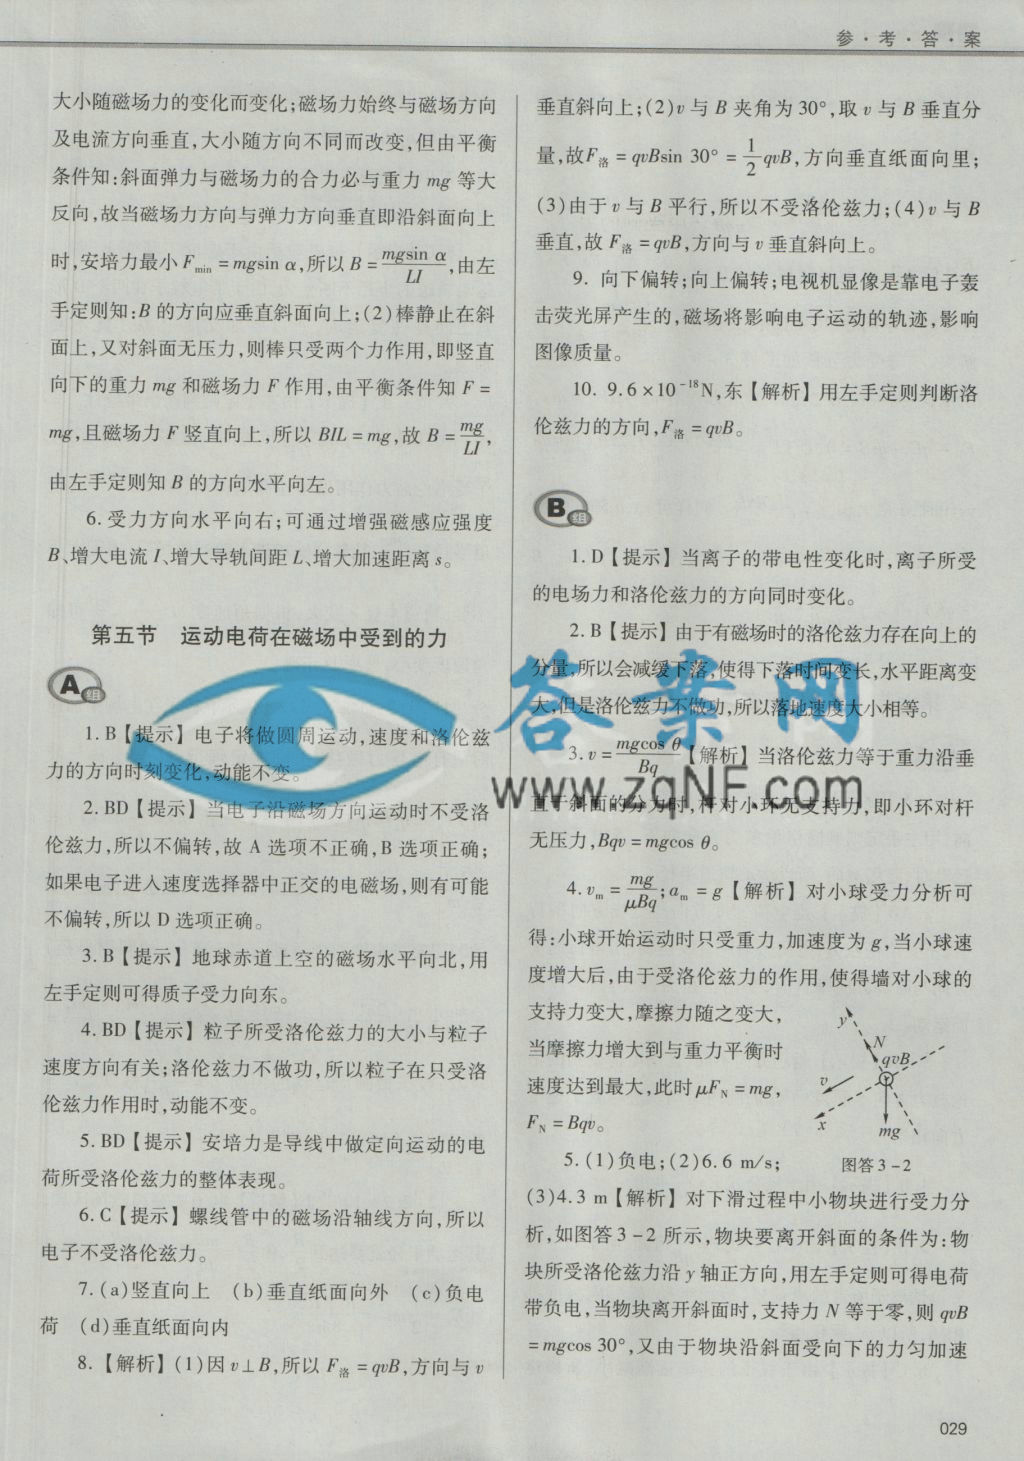 参·考·答·案
大小随磁场力的变化而变化;磁场力始终与磁场方向
及电流方向垂直,大小随方向不同而改变,但由平衡
条件知:斜面弹力与磁场力的合力必与重力 mg 等大
反向,故当磁场力方向与弹力方向垂直即沿斜面向上
时,安培力最小 F_min = mgsin α,所以 B = mgsin α/LI,由左
手定则知:B 的方向应垂直斜面向上;(2)棒静止在斜
面上,又对斜面无压力,则棒只受两个力作用,即竖直
向下的重力 mg 和磁场力 F 作用,由平衡条件知 F =
mg,且磁场力 F 竖直向上,所以 BIL = mg,故 B = mg/LI,
由左手定则知 B 的方向水平向左。
6. 受力方向水平向右;可通过增强磁感应强度
B、增大电流 I、增大导轨间距 L、增大加速距离 s。
第五节 运动电荷在磁场中受到的力
A组
1. B【提示】电子将做圆周运动,速度和洛伦兹
力的方向时刻变化,动能不变。
2. BD【提示】当电子沿磁场方向运动时不受洛
伦兹力,所以不偏转,故 A 选项不正确,B 选项正确;
如果电子进入速度选择器中正交的电磁场,则有可能
不偏转,所以 D 选项正确。
3. B【提示】地球赤道上空的磁场水平向北,用
左手定则可得质子受力向东。
4. BD【提示】粒子所受洛伦兹力的大小与粒子
速度方向有关;洛伦兹力不做功,所以粒子在只受洛
伦兹力作用时,动能不变。
5. BD【提示】安培力是导线中做定向运动的电
荷所受洛伦兹力的整体表现。
6. C【提示】螺线管中的磁场沿轴线方向,所以
电子不受洛伦兹力。
7. (a)竖直向上 (b)垂直纸面向外 (c)负电
荷 (d)垂直纸面向内
8. 【解析】(1)因 v⊥B,所以 F洛 = qvB,方向与 v
垂直斜向上;(2)v 与 B 夹角为 30°,取 v 与 B 垂直分
量,故F洛 = qvBsin 30° = 1/2 qvB,方向垂直纸面向里;
(3)由于 v 与 B 平行,所以不受洛伦兹力;(4)v 与 B
垂直,故 F洛 = qvB,方向与 v 垂直斜向上。
9. 向下偏转;向上偏转;电视机显像是靠电子轰
击荧光屏产生的,磁场将影响电子运动的轨迹,影响
图像质量。
10. 9.6×10⁻¹⁸N,东【解析】用左手定则判断洛
伦兹力的方向,F洛 = qvB。
B组
1. D【提示】当离子的带电性变化时,离子所受
的电场力和洛伦兹力的方向同时变化。
2. B【提示】由于有磁场时的洛伦兹力存在向上的
分量,所以会减缓下落,使得下落时间变长,水平距离变
大,但是洛伦兹力不做功,所以落地速度大小相等。
3. v = mgcos θ/Bq【解析】当洛伦兹力等于重力沿垂
直于斜面的分力时,杆对小环无支持力,即小环对杆
无压力,Bqv = mgcos θ。
4. v_m = mg/μBq;a_m = g【解析】对小球受力分析可
得:小球开始运动时只受重力,加速度为 g,当小球速
度增大后,由于受洛伦兹力的作用,使得墙对小球的
支持力变大,摩擦力随之变大,
当摩擦力增大到与重力平衡时
速度达到最大,此时 μF_N = mg,
F_N = Bqv。
y
N
qvB
v
x
mg
图答 3-2
5. (1)负电;(2)6.6 m/s;
(3)4.3 m【解析】对下滑过程中小物块进行受力分
析,如图答 3-2 所示,物块要离开斜面的条件为:物
块所受洛伦兹力沿 y 轴正方向,用左手定则可得电荷
带负电,当物块离开斜面时,支持力 N 等于零,则 qvB
= mgcos 30°,又由于物块沿斜面受向下的力匀加速
答案网
www.zqNF.com
029